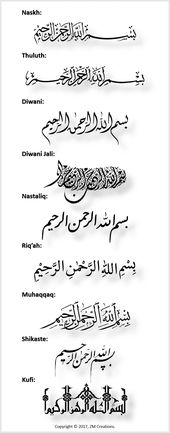 Naskh:
بسم الله الرحمن الرحيم
Thuluth:
بسم الله الرحمن الرحيم
Diwani:
بسم الله الرحمن الرحيم
Diwani Jali:
بسم الله الرحمن الرحيم
Nastaliq:
بسم الله الرحمن الرحيم
Riq'ah:
بِسْمِ اللهِ الرَّحْمٰنِ الرَّحِيْمِ
Muhaqqaq:
بسم الله الرحمن الرحيم
Shikaste:
بسم الله الرحمن الرحيم
Kufi:
بسم الله الرحمن الرحيم
Copyright © 2017, ZM Creations.